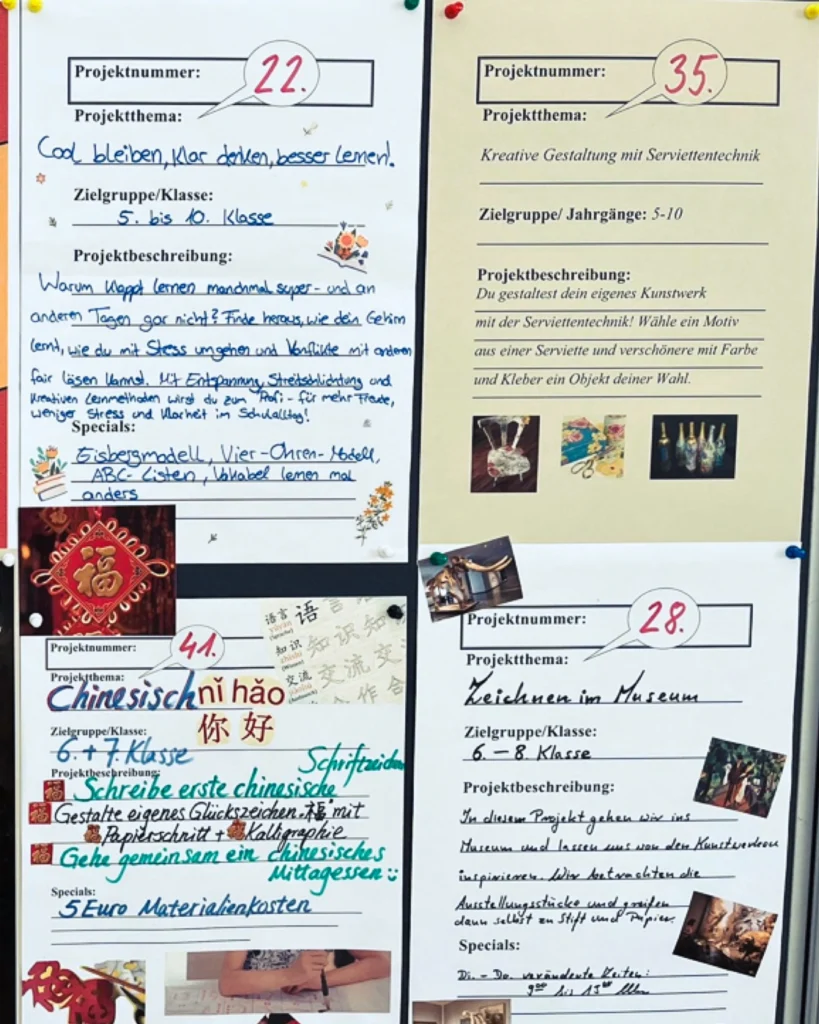 Projektnummer: 22.
Projektthema:
Cool bleiben, klar denken, besser lernen!
Zielgruppe/Klasse:
5. bis 10. Klasse
Projektbeschreibung:
Warum klappt lernen manchmal super - und an
anderen Tagen gar nicht? Finde heraus, wie dein Gehirn
lernt, wie du mit Stress umgehen und Konflikte mit anderen
fair lösen kannst. Mit Entspannung, Streitschlichtung und
kreativen Lernmethoden wirst du zum Profi - für mehr Freude,
weniger Stress und Klarheit im Schulalltag!
Specials:
Eisbergmodell, Vier-Ohren-Modell,
ABC-Listen, Vokabel lernen mal
anders
Projektnummer: 35.
Projektthema:
Kreative Gestaltung mit Serviettentechnik
Zielgruppe/ Jahrgänge: 5-10
Projektbeschreibung:
Du gestaltest dein eigenes Kunstwerk
mit der Serviettentechnik! Wähle ein Motiv
aus einer Serviette und verschönere mit Farbe
und Kleber ein Objekt deiner Wahl.
福
语言 语 言
知识 知识知
交流 交流交
作合
Projektnummer: 41.
Projektthema:
Chinesisch nǐ hǎo
你 好
Zielgruppe/Klasse:
6. + 7. Klasse
Projektbeschreibung:
Schreibe erste chinesische Schriftzeichen
Gestalte eigenes Glückszeichen 福 mit
Papierschnitt + Kalligraphie
Gehe gemeinsam ein chinesisches
Mittagessen
Specials:
5 Euro Materialienkosten
Projektnummer: 28.
Projektthema:
Zeichnen im Museum
Zielgruppe/Klasse:
6. - 8. Klasse
Projektbeschreibung:
In diesem Projekt gehen wir ins
Museum und lassen uns von den Kunstwerken
inspirieren. Wir betrachten die
Ausstellungsstücke und greifen
dann selbst zu Stift und Papier.
Specials:
Di. - Do. veränderte Zeiten:
9⁰⁰ bis 13⁰⁰ Uhr